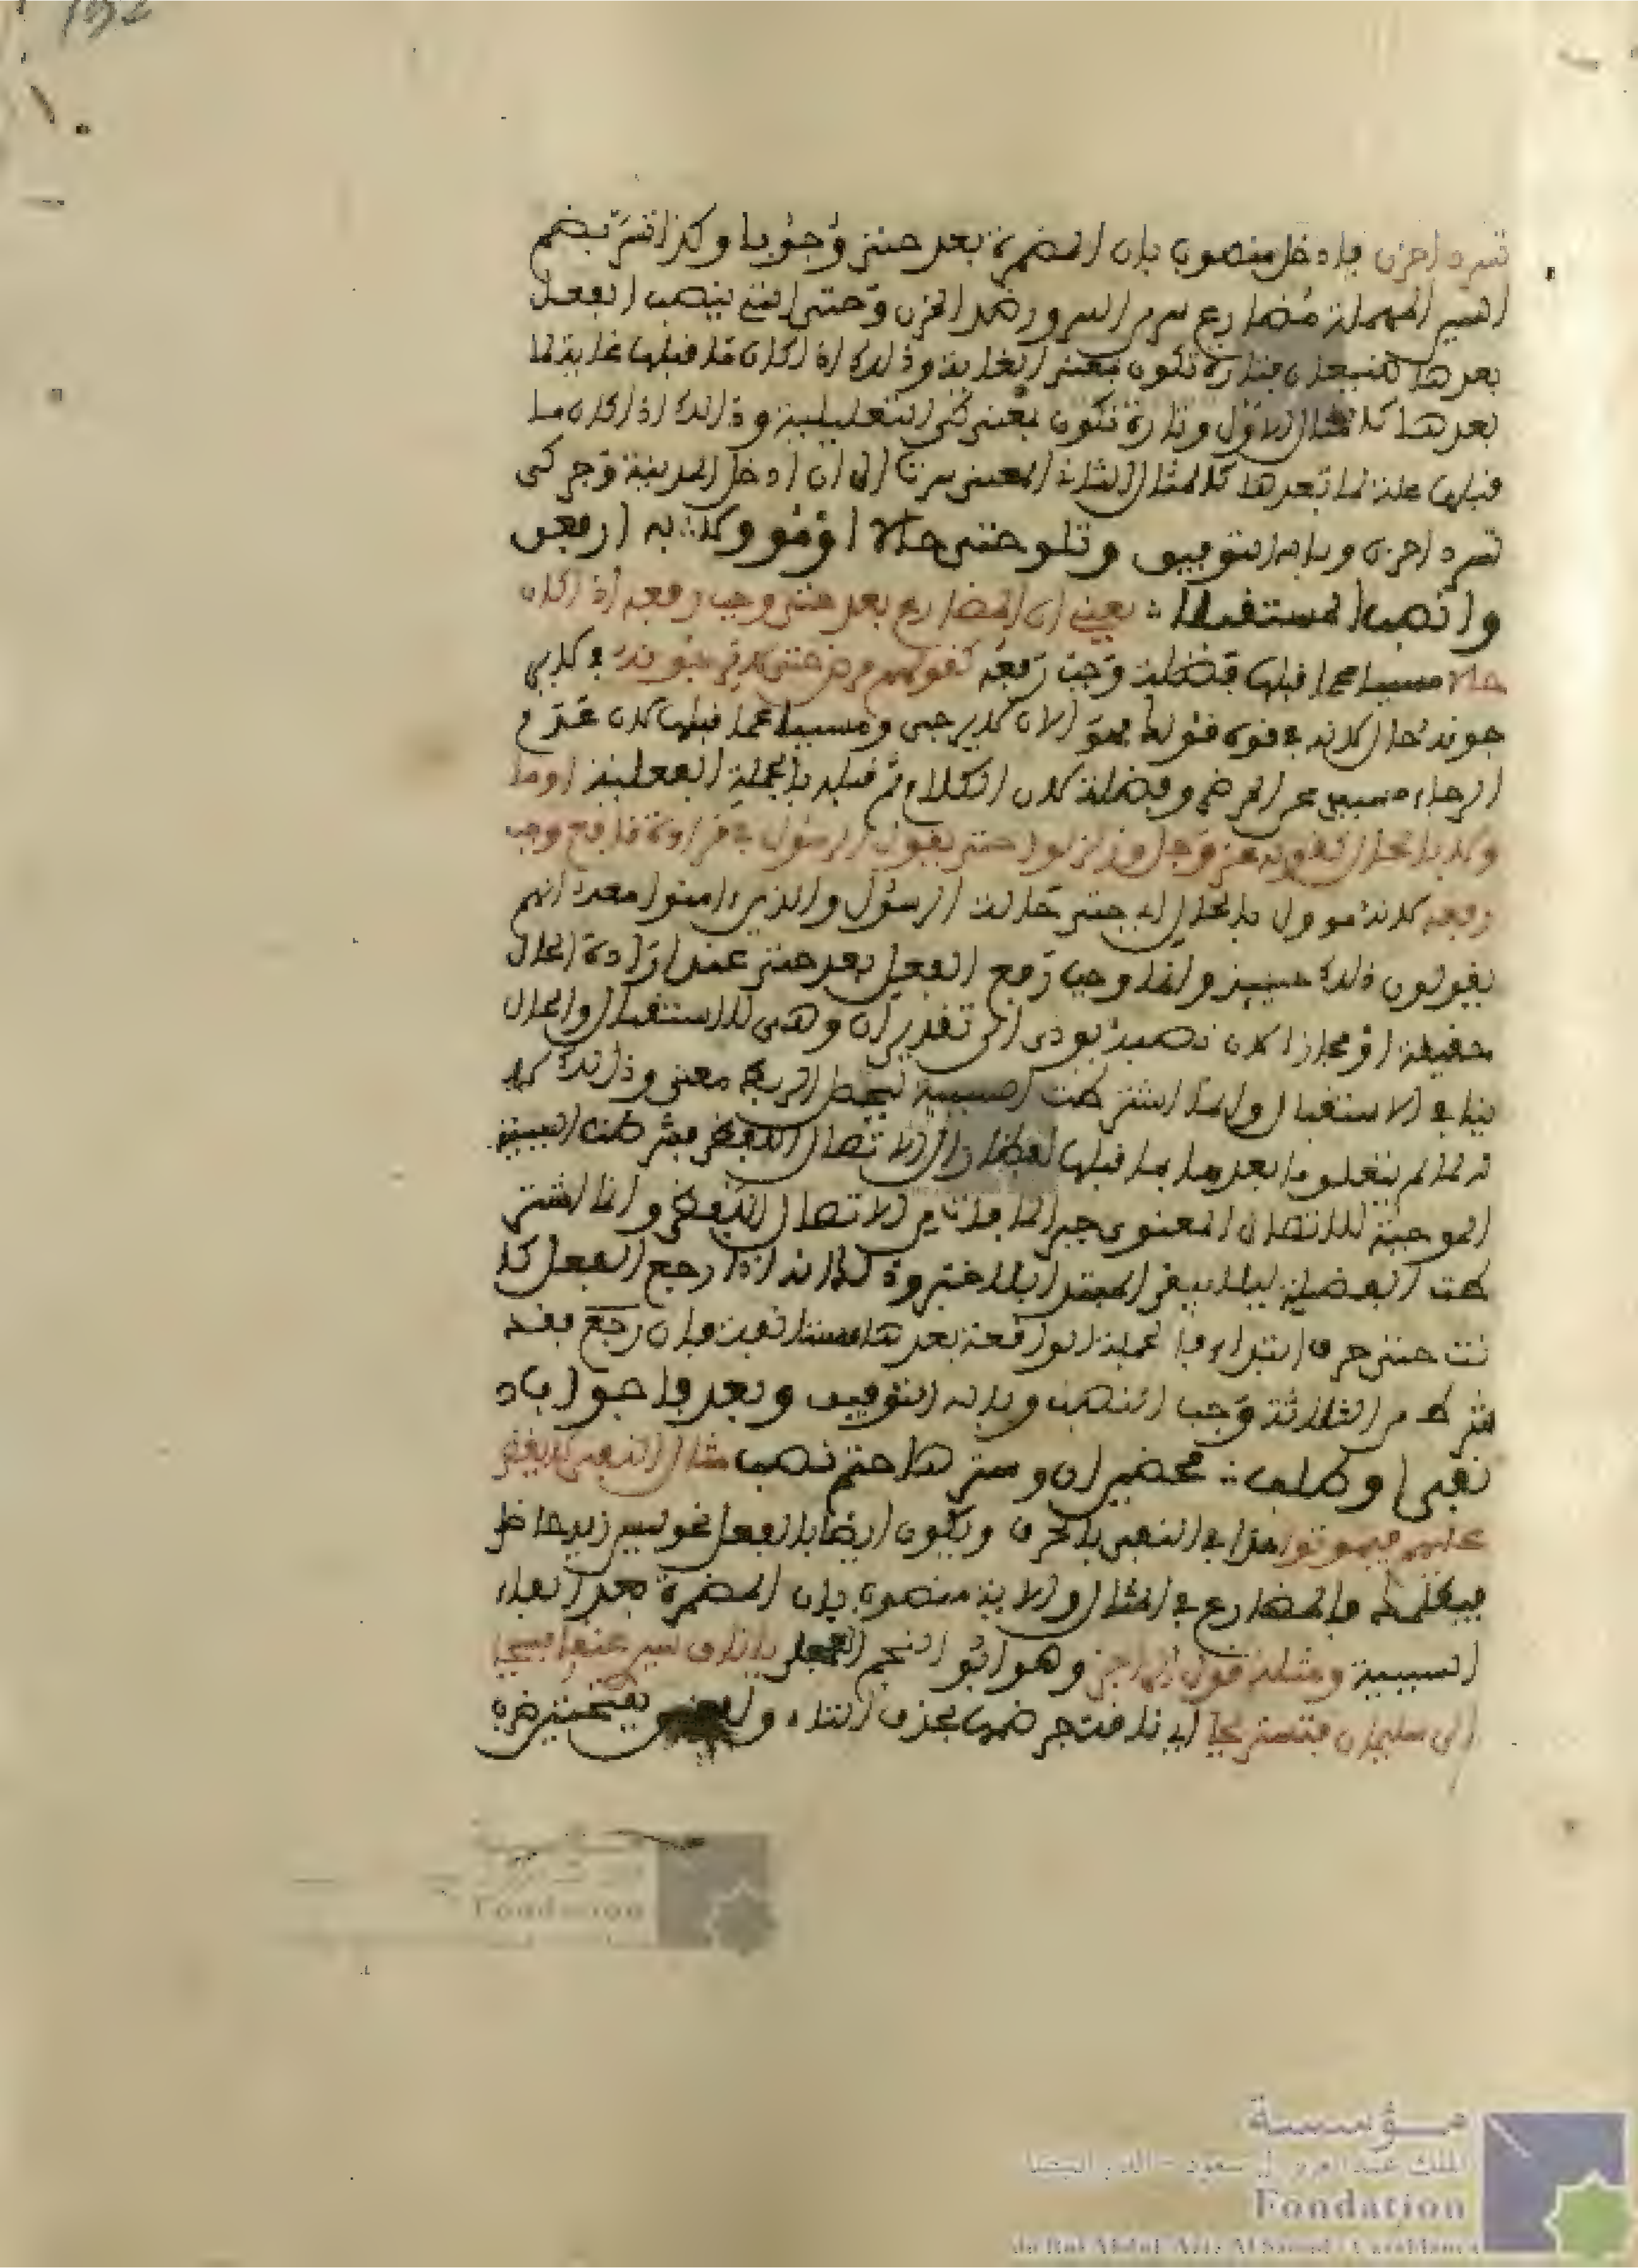 تسر ذا حزن فادخل منصوب بان المضمرة بعد حتى وجوبا وكذا تسر بضم
السين المهملة مضارع سر من السرور ضد الحزن وحتى التي ينصب الفعل
بعدها فتارة تكون بمعنى الغاية وذلك اذا كان ما قبلها غاية لما
بعدها كالمثال الاول وتارة تكون بمعنى كي التعليلية وذلك اذا كان ما
قبلها علة لما بعدها كالمثال الثاني المعنى سرت الى ان ادخل المدينة وجد كي
تسر ذا حزن وبالله التوفيق وتلو حتى حالا او مؤولا به ارفعن
وانصب المستقبلا يعني ان المضارع بعد حتى وجب رفعه اذا كان
حالا مسببا عما قبلها فضلة وجب رفعه كقولهم مرض حتى لا يرجونه فلا ير
جونه حال لانه في قوة قولك فهو الان لا يرجى ومسببا عما قبلها لان عدم
الرجاء مسبب عن المرض وفضلة لان الكلام تم قبله بالجملة الفعلية او ما
ولا بالحال كقوله عز وجل وزلزلوا حتى يقول الرسول في قراءة نافع وجب
رفعه لانه مؤول بالحال اي حتى حالة الرسول والذين ءامنوا معه انهم
يقولون ذلك حينئذ وانما وجب رفع الفعل بعد حتى عند ارادة الحال
حقيقة او مجازا لان نصبه يؤدي الى تقدير ان وهي للاستقبال والحال
ينافي الاستقبال وانما اشترطت السببية ليحصل الربط معنى وذلك
لما لم يتعلق ما بعدها بما قبلها لفظا زال الاتصال اللفظي فشرطت السببية
الموجبة للاتصال المعنوي جبرا لما فات من الاتصال اللفظي وانما اشتر
طت الفضلية ليلا يبقى المبتدا بلا خبر وذلك انه اذا رفع الفعل كا
نت حتى حرف ابتداء فالجملة الواقعة بعدها مستانفة فان رجع فقد
شرط من الثلاثة وجب النصب وبالله التوفيق وبعد فا جواب
نفي او طلب محضين ان وسترها حتم نصب مثال النفي لا يقضى
عليهم فيموتوا هذا في النفي بالحرف ويكون ايضا بالفعل نحو ليس زيد حاضر
فيكلمك فالمضارع في المثال والاية منصوب بان المضمرة بعد الفاء
السببية ومثله قول الراجز وهو ابو النجم العجلي يا ناق سيري عنقا فسيحا
الى سليمان فنستريحا اي يا ناقة فرخمت بحذف التاء والعنق بفتحتين ضرب
مؤسسة
الملك عبد العزيز آل سعود - الدار البيضاء
Fondation
du Roi Abdul-Aziz Al Saoud - Casablanca